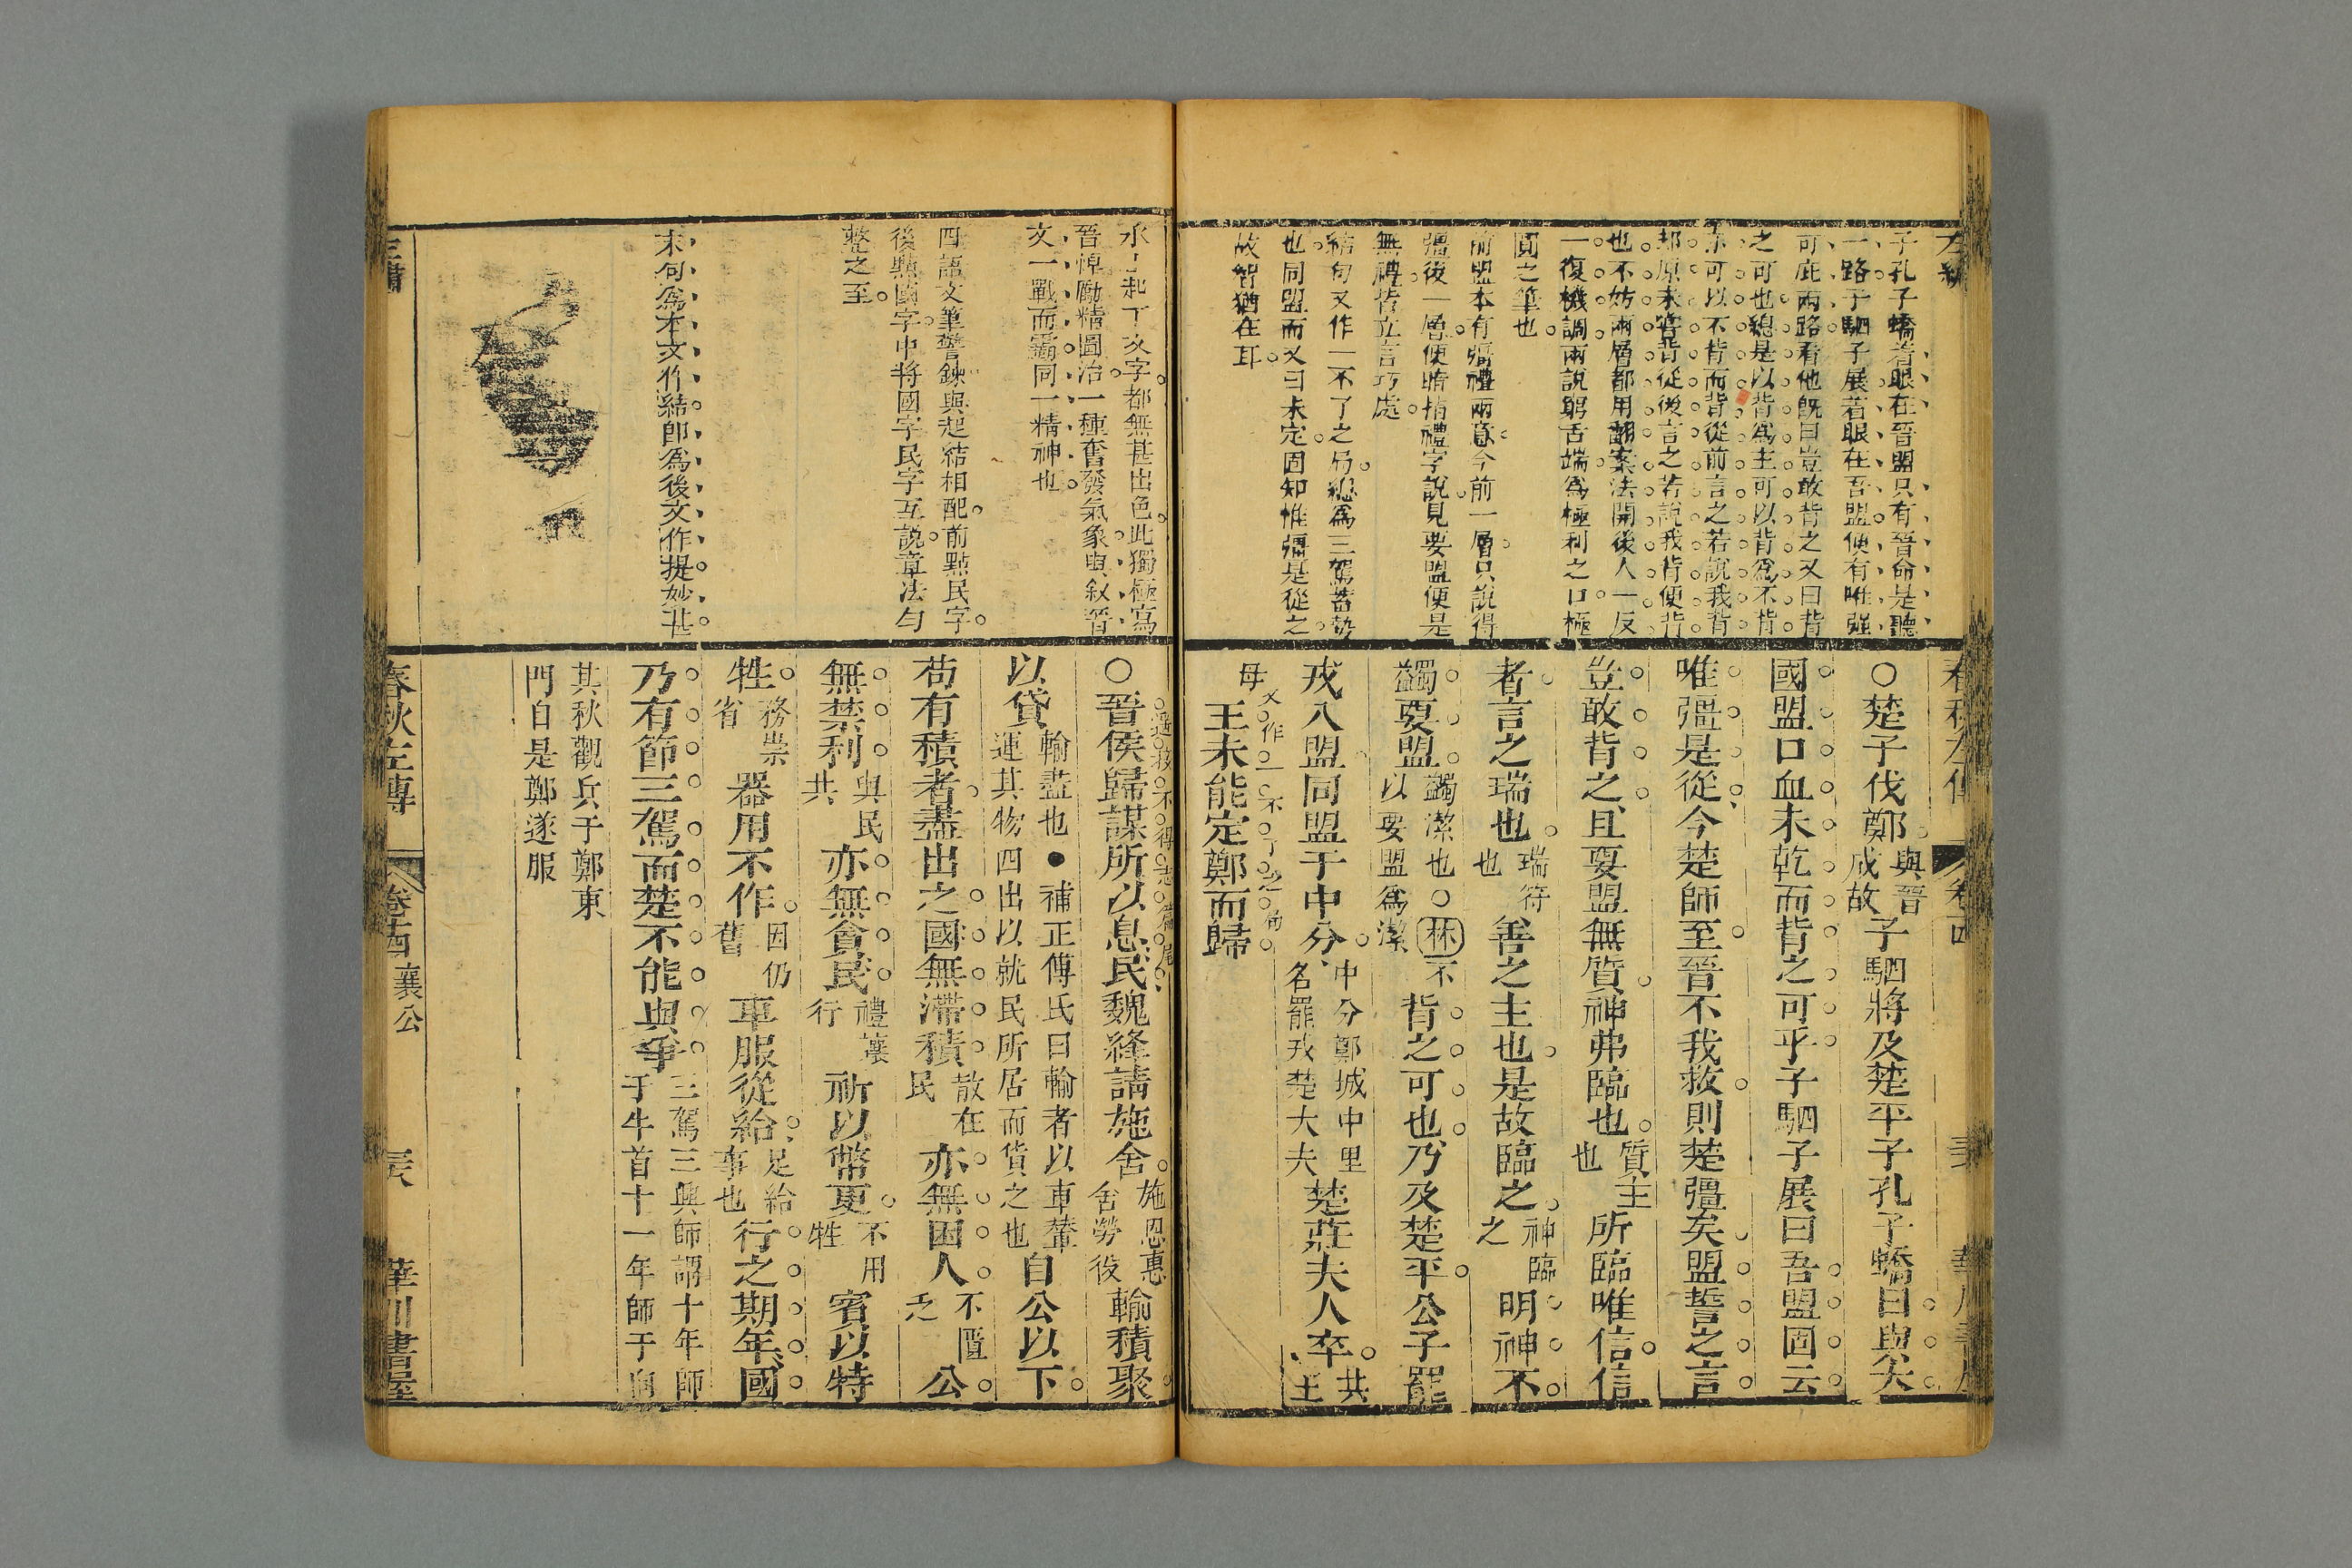 子孔子蟜着眼在晉盟只有晉命是聽
一路子駟子展着眼在吾盟便有唯强
可庇兩路看他既曰豈敢背之又曰背
之可也總是以背爲主可以背爲不背
亦可以不背而背從前言之若說我背
却原未嘗背從後言之若說我背便背
也不妨兩層都用翻案法開後人一反
一復機調兩說窮舌端爲極利之口極
圓之筆也
前盟本有彊禮兩意今前一層只說得
彊後一層便暗指禮字說見要盟便是
無禮皆立言巧處
結句又作一不了之局總爲三駕蓄勢
也同盟而又曰未定固知惟彊是從之
故智猶在耳
○楚子伐鄭與晉成故子駟將及楚平子孔子蟜曰與大
國盟口血未乾而背之可乎子駟子展曰吾盟固云
唯彊是從今楚師至晉不我救則楚彊矣盟誓之言
豈敢背之且要盟無質神弗臨也質主也所臨唯信信
者言之瑞也瑞符也善之主也是故臨之神臨之明神不
蠲要盟蠲潔也○林不以要盟爲潔背之可也乃及楚平公子罷
戎入盟同盟于中分中分鄭城中里名罷戎楚大夫楚莊夫人卒共王
母王未能定鄭而歸
又作一不了之句
起丁文字都無甚出色此獨極寫
晉悼勵精圖治一種奮發氣象與敘晉
文一戰而霸同一精神也
四語文筆警鍊與起結相配前點民字
後點國字中將國字民字互說章法勻
整之至
末句爲本文作結即爲後文作提妙甚
○晉侯歸謀所以息民魏絳請施舍施恩惠舍勞役輸積聚
以貸輸盡也●補正傅氏曰輸者以車輦運其物四出以就民所居而貸之也自公以下
苟有積者盡出之國無滯積散在民亦無困人不匱乏公
無禁利與民共亦無貪民禮讓行祈以幣更不用牲賓以特
牲務崇省器用不作因仍舊車服從給足給事也行之期年國
乃有節三駕而楚不能與爭三駕三興師謂十年師于牛首十一年師于向
其秋觀兵于鄭東
門自是鄭遂服
春秋左傳
卷十四 襄公
華川書屋